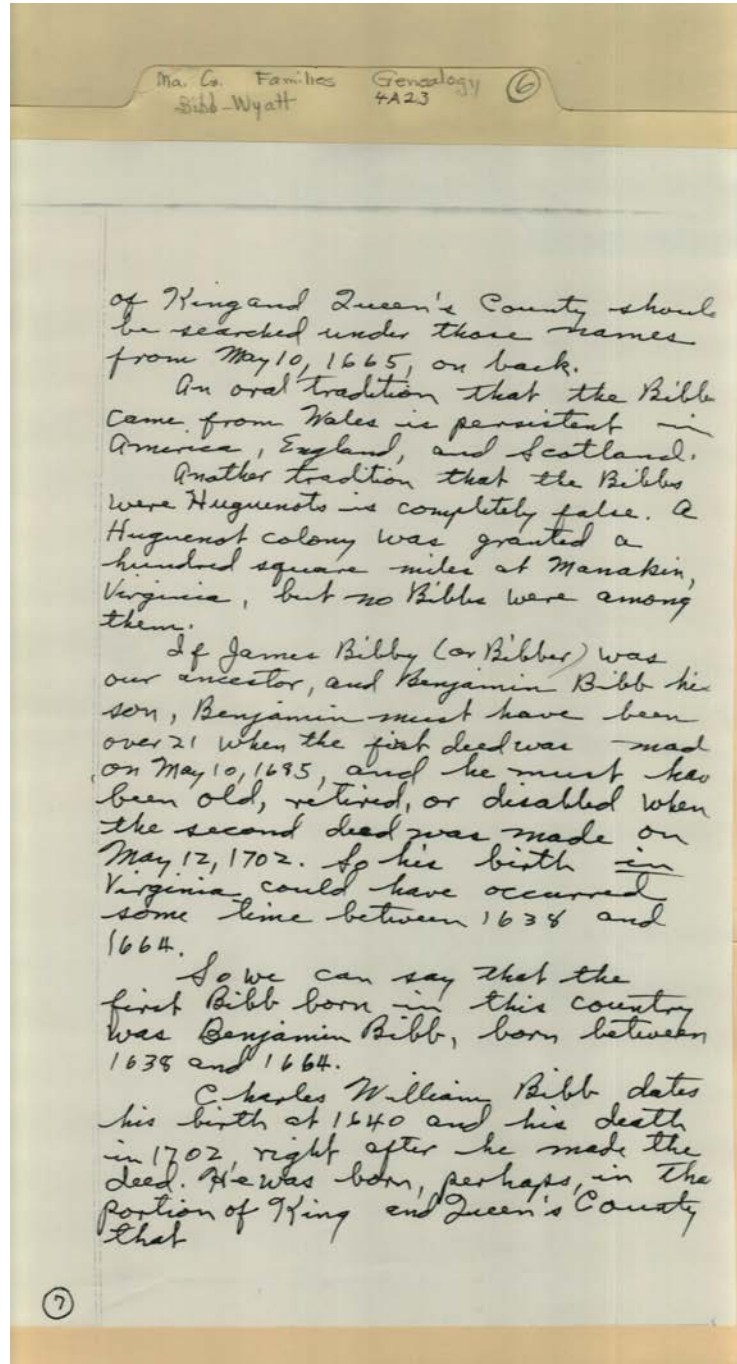 Ma. Co. Families Genealogy ⑥
Bibb-Wyatt 4A23
of King and Queen's County shoul
be searched under those names
from May 10, 1665, on back.
An oral tradition that the Bibb
came from Wales is persistent in
America, England, and Scotland.
Another tradition that the Bibbs
were Huguenots is completely false. A
Huguenot colony was granted a
hundred square miles at Manakin,
Virginia, but no Bibbs were among
them.
If James Bibby (or Bibber) was
our ancestor, and Benjamin Bibb his
son, Benjamin must have been
over 21 when the first deed was mad
on May 10, 1685, and he must hav
been old, retired, or disabled when
the second deed was made on
May 12, 1702. So his birth in
Virginia could have occurred
some time between 1638 and
1664.
So we can say that the
first Bibb born in this country
was Benjamin Bibb, born between
1638 and 1664.
Charles William Bibb dates
his birth at 1640 and his death
in 1702, right after he made the
deed. He was born, perhaps, in the
portion of King and Queen's County
that
⑦